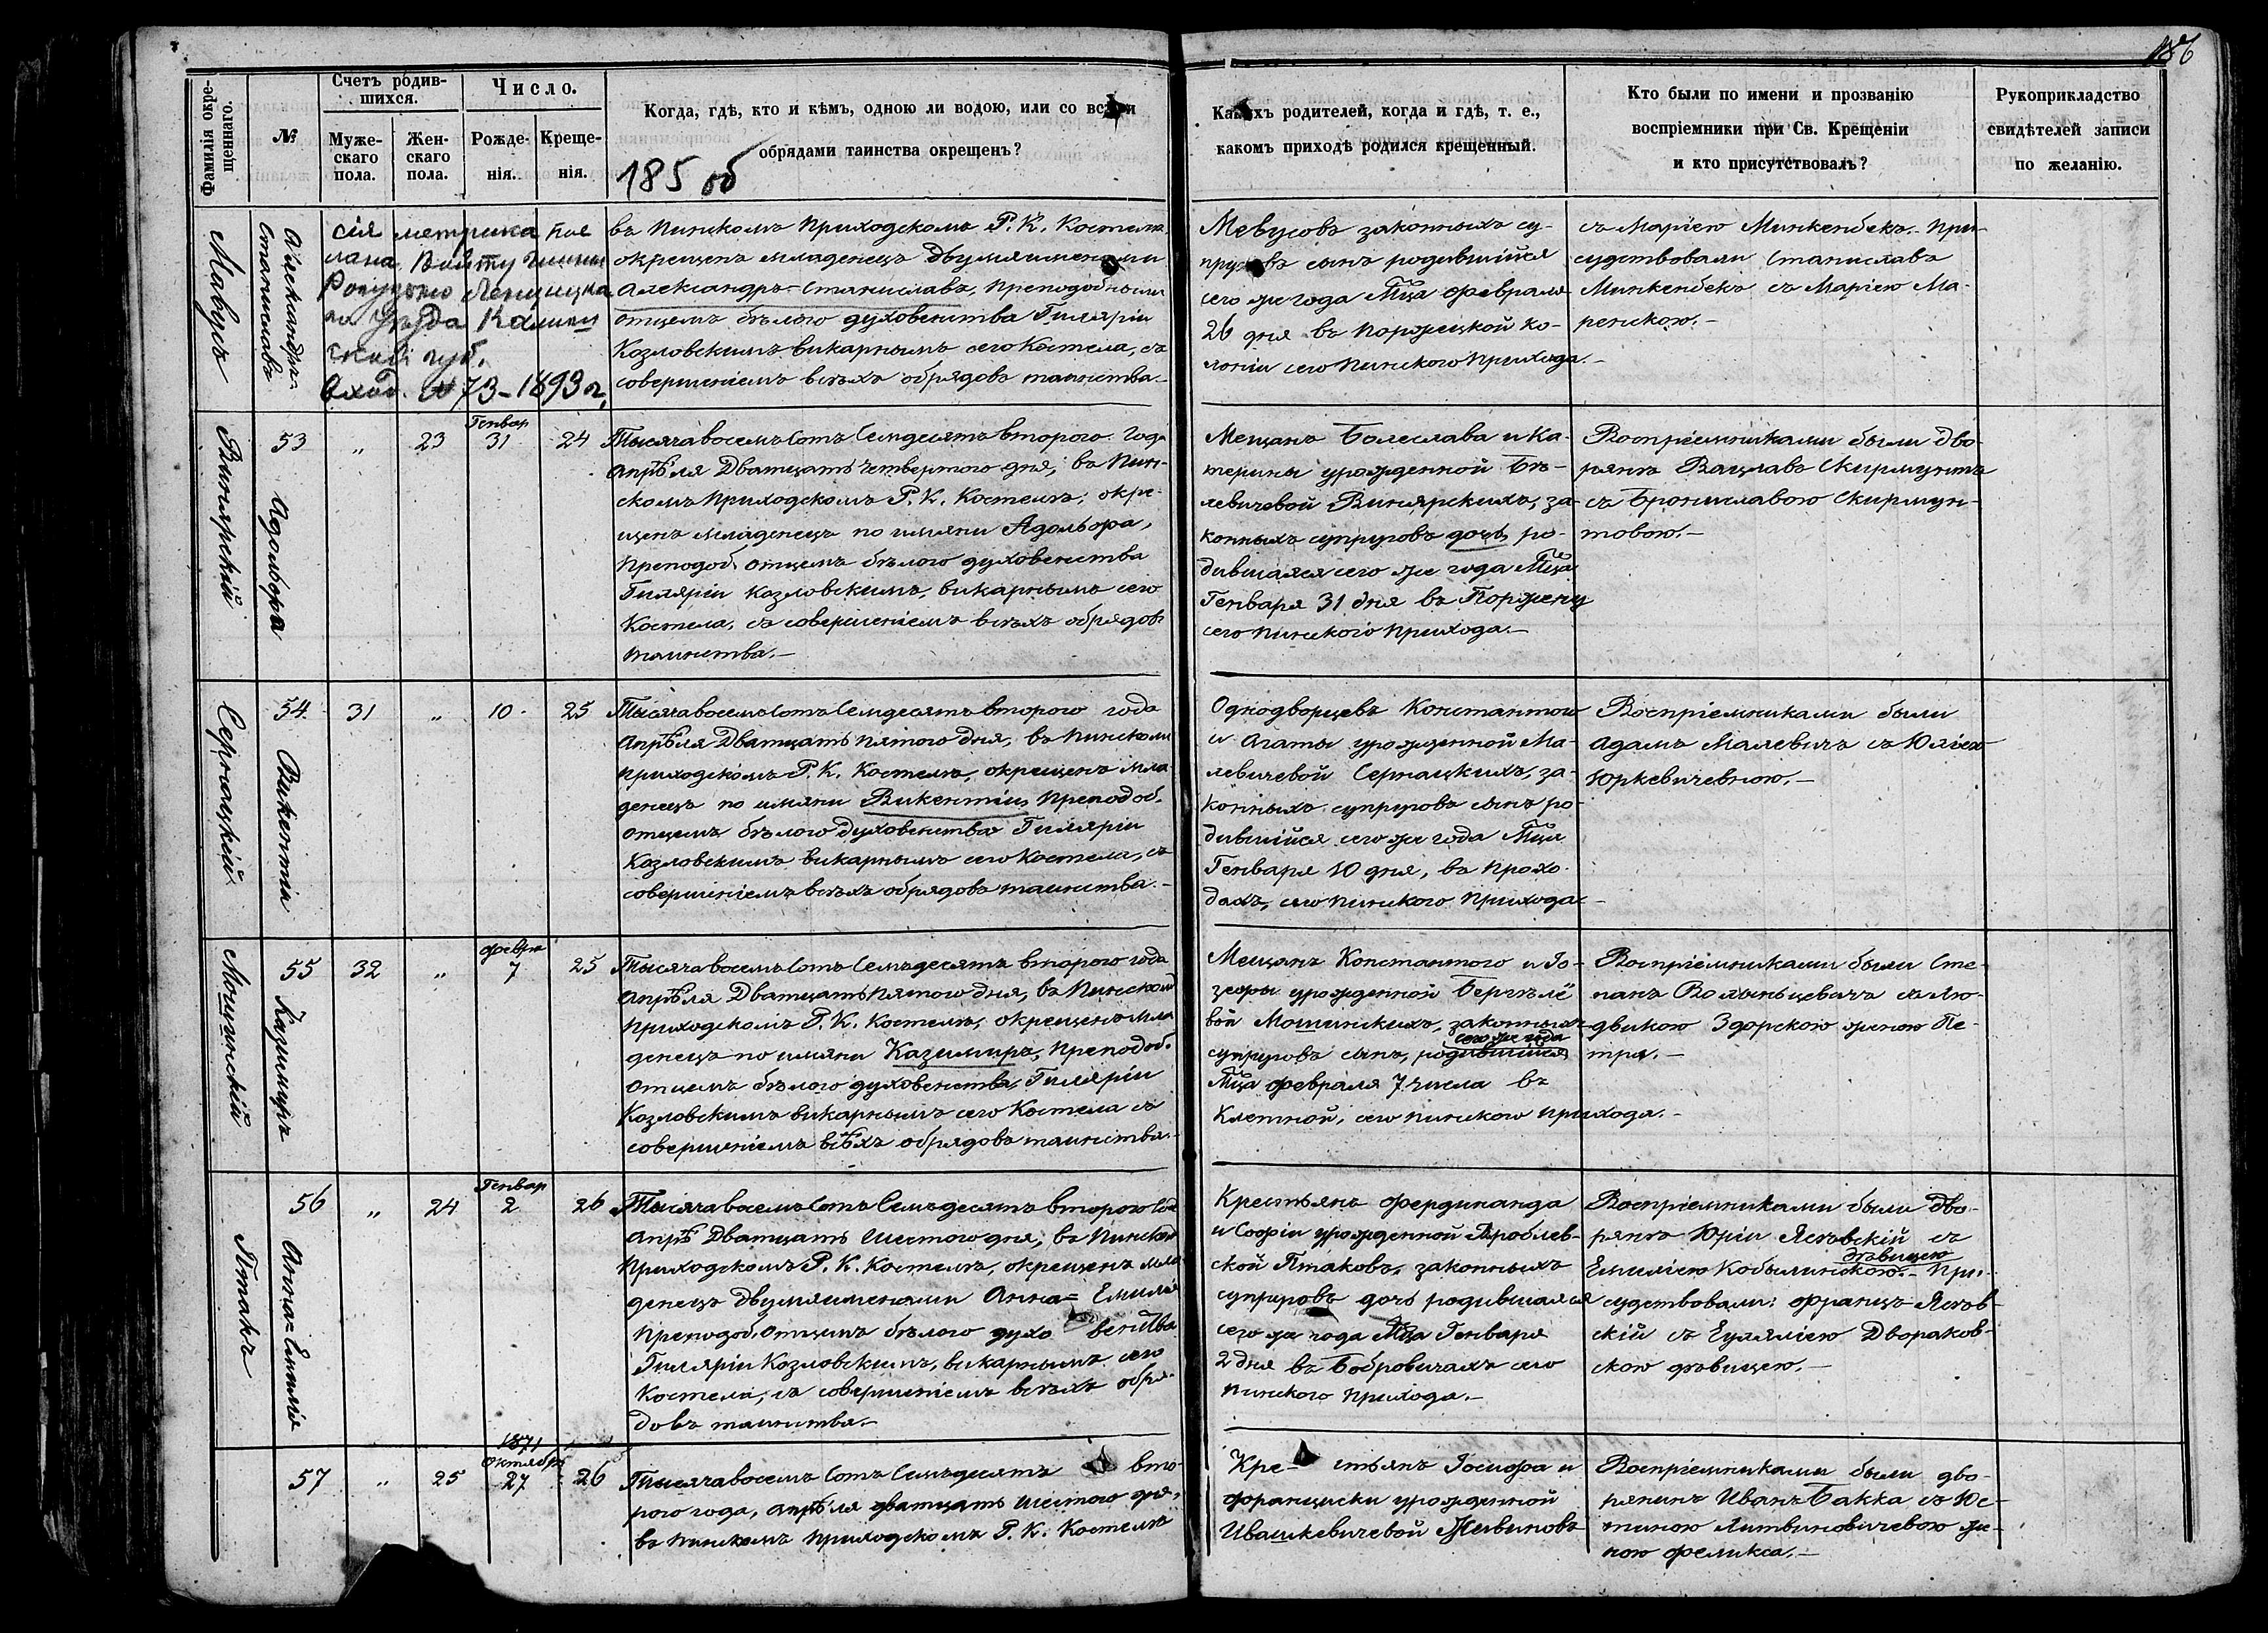 186
Фамилія окрещеннаго.
№
Счетъ родившихся.
Мужескаго пола.
Женскаго пола.
Число.
Рожденія.
Крещенія.
Когда, гдѣ, кто и кѣмъ, одною ли водою, или со всѣми
обрядами таинства окрещенъ?
185 об
Какихъ родителей, когда и гдѣ, т. е.,
какомъ приходѣ родился крещенный.
Кто были по имени и прозванію
воспріемники при Св. Крещеніи
и кто присутствовалъ?
Рукоприкладство
свидѣтелей записи
по желанію.
Мавусъ
Александръ-
Станиславъ
сія метрика пос
лана Войту гмины
на Уѣзда Калиш
ской губ.
вход. № 73-1893 г.
въ Пинскомъ Приходскомъ Р. К. Костелѣ
окрещенъ младенецъ двумя именами
Александръ-Станиславъ, Преподобнымъ
отцемъ бѣлого духовенства Гиляріи
Козловскимъ викарнымъ сего Костела, съ
совершеніемъ всѣхъ обрядовъ таинства.-
Мевусовъ законныхъ су-
пруговъ сынъ родившійся
сего же года Мца Февраля
26 дня въ Порѣцкой ко-
лоніи сего Пинского Прихода.-
съ Маріею Минкенбекъ. При-
судствовали Станиславъ
Минкенбекъ съ Маріею Ма-
ренскою.-
Винярскій
53
Адольфа
„
23
Генвар
31
24
Тысяча восемъ Сотъ Семдесятъ второго Года
Апрѣля Двацать Четвертого дня, въ Пин-
скомъ Приходскомъ Р. К. Костелѣ, окре-
щенъ младенецъ по имяни Адольфа,
Преподоб. отцемъ бѣлого духовенства
Гиляріи Козловскимъ, викарнымъ сего
Костела, съ совершеніемъ всѣхъ обрядовъ
таинства.-
Мещанъ Болеслава и Ка-
терины урожденной Бѣ-
левичевой Винярскихъ, за-
конныхъ супруговъ дочь ро-
дившаяся сего же года Мца
Генваря 31 дня въ
сего Пинского Прихода.-
Воспріемниками были дво-
рянъ Вацлавъ Скирмунтъ
съ Брониславою Скирмун-
товою.-
Серпацкій
54
Викентіи
31
„
10
25
Тысяча восемъ Сотъ Семдесятъ второго года
Апрѣля Двацать пятого дня, въ Пинскомъ
Приходскомъ Р. К. Костелѣ, окрещенъ мла-
денецъ по имяни Викентіи, Преподоб.
отцемъ бѣлого духовенства Гиляріи
Козловскимъ викарнымъ сего Костела, съ
совершеніемъ всѣхъ обрядовъ таинства.-
Однодворцевъ Константого
и Агаты урожденной Ма-
левичевой Серпацкихъ, за-
конныхъ супруговъ сынъ ро-
дившійся сего же года Мца
Генваря 10 дня, въ Прохо-
дахъ, сего Пинского Прихода.-
Воспріемниками были
Адамъ Малевичъ съ Юліею
Юркевичевною.-
Мошинскій
55
Казимиръ
32
„
Февра
7
25
Тысяча восемъ Сотъ Семьдесятъ второго года
Апрѣля Двацать пятого дня, въ Пинскомъ
Приходскомъ Р. К. Костелѣ, окрещенъ мла
денецъ по имяни Казимиръ, Преподоб.
отцемъ бѣлого духовенства, Гиляріи
Козловскимъ викарнымъ сего Костела съ
совершеніемъ всѣхъ обрядовъ таинства.-
Мещанъ Константого и Іо-
зефы урожденной
вой Мошинскихъ, законныхъ
сего же года
супруговъ сынъ, родившійся
Мца Февраля 7 числа въ
Клетной, сего Пинского Прихода.-
Воспріемниками были Сте-
панъ Волынцевичъ съ Лю-
двикою Здорскою женою Пе-
тра.-
Птакъ
56
Анна=Емилія
„
24
Генвар
2
26
Тысяча восемъ Сотъ Семьдесятъ второго Года
Апрѣ Двацать шестого дня, въ Пинском
Приходскомъ Р. К. Костелѣ, окрещенъ мла
денецъ двумя именами Анна=Емилія
Преподоб. отцемъ бѣлого духо венства
Гиляріи Козловскимъ, викарнымъ сего
Костела, съ совершеніемъ всѣхъ обря-
довъ таинства.-
Крестьянъ Фердинанда
и Софіи урожденной Вроблев-
ской Птаковъ, законныхъ
супруговъ дочь родившаяся
сего же года Мца Генваря
2 дня въ Бобровичахъ сего
Пинского Прихода.-
Воспріемниками были Дво-
рянъ Юріи Ясѣвскій съ
дѣвицею
Емиліею Кобылинскою.- При-
судствовали: Францъ Ясѣв-
скій съ Еуляліею Двораков-
скою дѣвицею.-
57
„
25
1871
Октября
27
26
Тысяча восемъ Сотъ Семьдесятъ вто-
рого года, Апрѣля двацать шестого дня,
въ Пинскомъ Приходскомъ Р. К. Костелѣ
Кре- стьянъ Іосифа и
Франциски урожденной
Ивашкевичевой Живиновъ
Воспріемниками были дво-
рянинъ Иванъ Бакка съ Юс-
тиною Литвиновичевою же-
ною Феликса.-